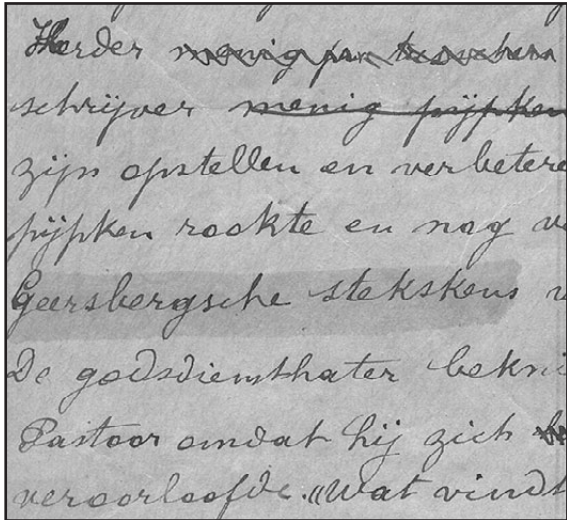 Herder menig
schrijver menig pijpken
zijn opstellen en verbetere
pijpken rookte en nog v
Geersbergsche stekskens v
De godsdiensthater bekni
Pastoor omdat hij zich
veroorloofde. „Wat vindt